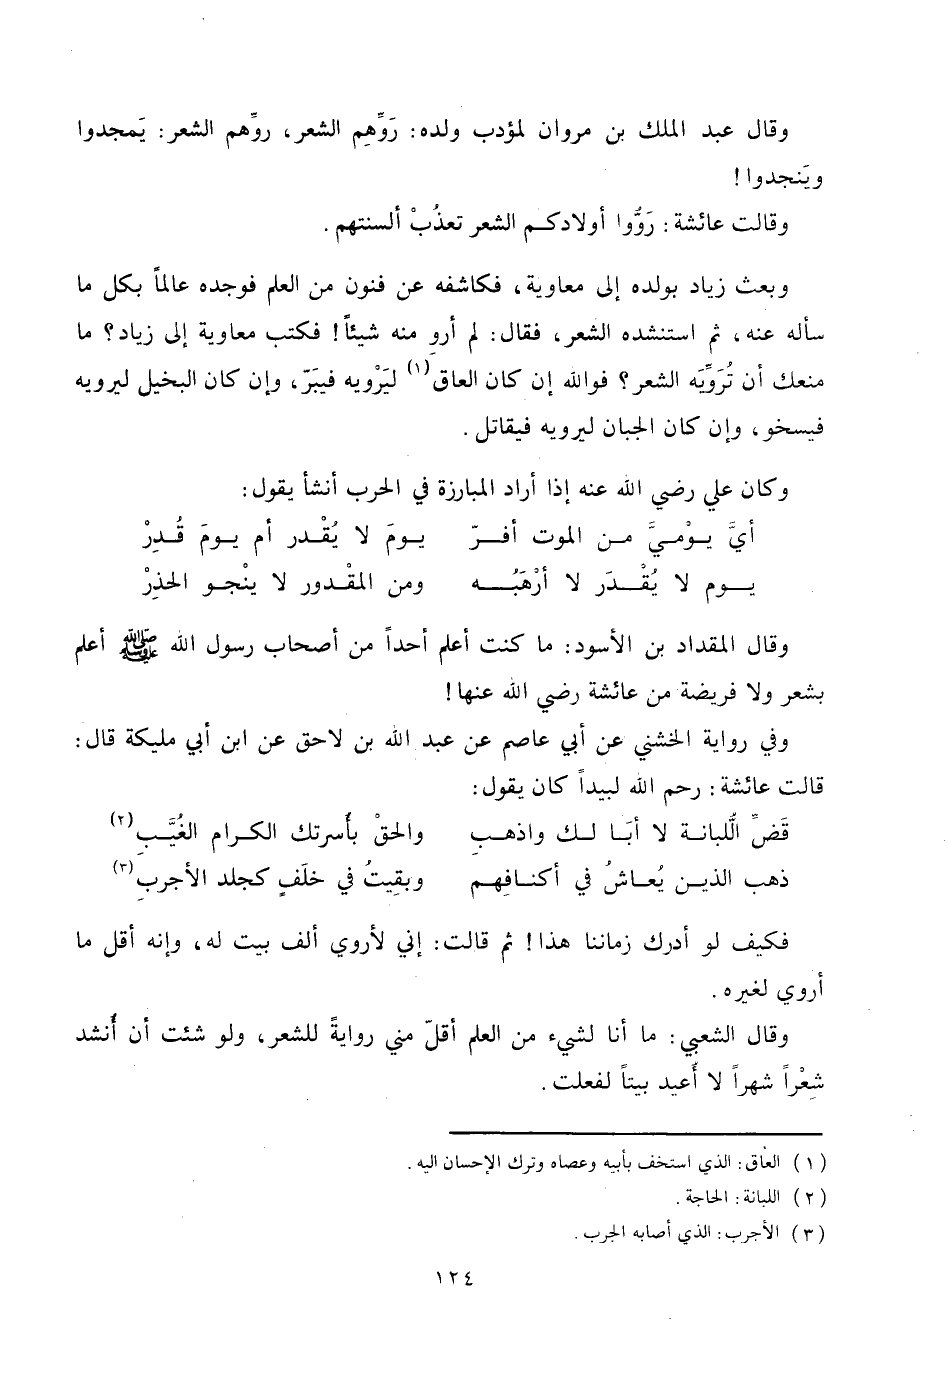 وقال عبد الملك بن مروان لمؤدب ولده: رَوِّهم الشعر، روِّهم الشعر: يَمجدوا
ويَنجدوا!
وقالت عائشة: رَوُّوا أولادكم الشعر تعذُبْ ألسنتهم.
وبعث زياد بولده إلى معاوية، فكاشفه عن فنون من العلم فوجده عالماً بكل ما
سأله عنه، ثم استنشده الشعر، فقال: لم أروِ منه شيئاً! فكتب معاوية إلى زياد؟ ما
منعك أن تُرَوِّيَه الشعر؟ فوالله إن كان العاق(١) ليَرْويه فيبَرّ، وإن كان البخيل ليرويه
فيسخو، وإن كان الجبان ليرويه فيقاتل.
وكان علي رضي الله عنه إذا أراد المبارزة في الحرب أنشأ يقول:
أيَّ يـوْميَّ مـن الموت أفـرّ يـومَ لا يُقْـدر أم يـومَ قُـدِرْ
يـوم لا يُقْـدَر لا أرْهَبُـه ومن المقْدور لا ينْجـو الحذِرْ
وقال المقداد بن الأسود: ما كنت أعلم أحداً من أصحاب رسول الله ﷺ أعلم
بشعر ولا فريضة من عائشة رضي الله عنها!
وفي رواية الخشني عن أبي عاصم عن عبد الله بن لاحق عن ابن أبي مليكة قال:
قالت عائشة: رحم الله لبيداً كان يقول:
قَضِّ اللُّبانـة لا أبَـا لـك واذهـبِ والحقْ بأُسرتك الكـرام الغُيَّـبِ(٢)
ذهب الذيـن يُعـاشُ في أكنـافِهـم وبقِيتُ في خلَفٍ كجلد الأجربِ(٣)
فكيف لو أدرك زماننا هذا! ثم قالت: إني لأروي ألف بيت له، وإنه أقل ما
أروي لغيره.
وقال الشعبي: ما أنا لشيء من العلم أقلّ مني روايةً للشعر، ولو شئت أن أُنشد
شِعْراً شهراً لا أُعيد بيتاً لفعلت.
(١) العاق: الذي استخف بأبيه وعصاه وترك الإحسان اليه.
(٢) اللبانة: الحاجة.
(٣) الأجرب: الذي أصابه الجرب.
١٢٤